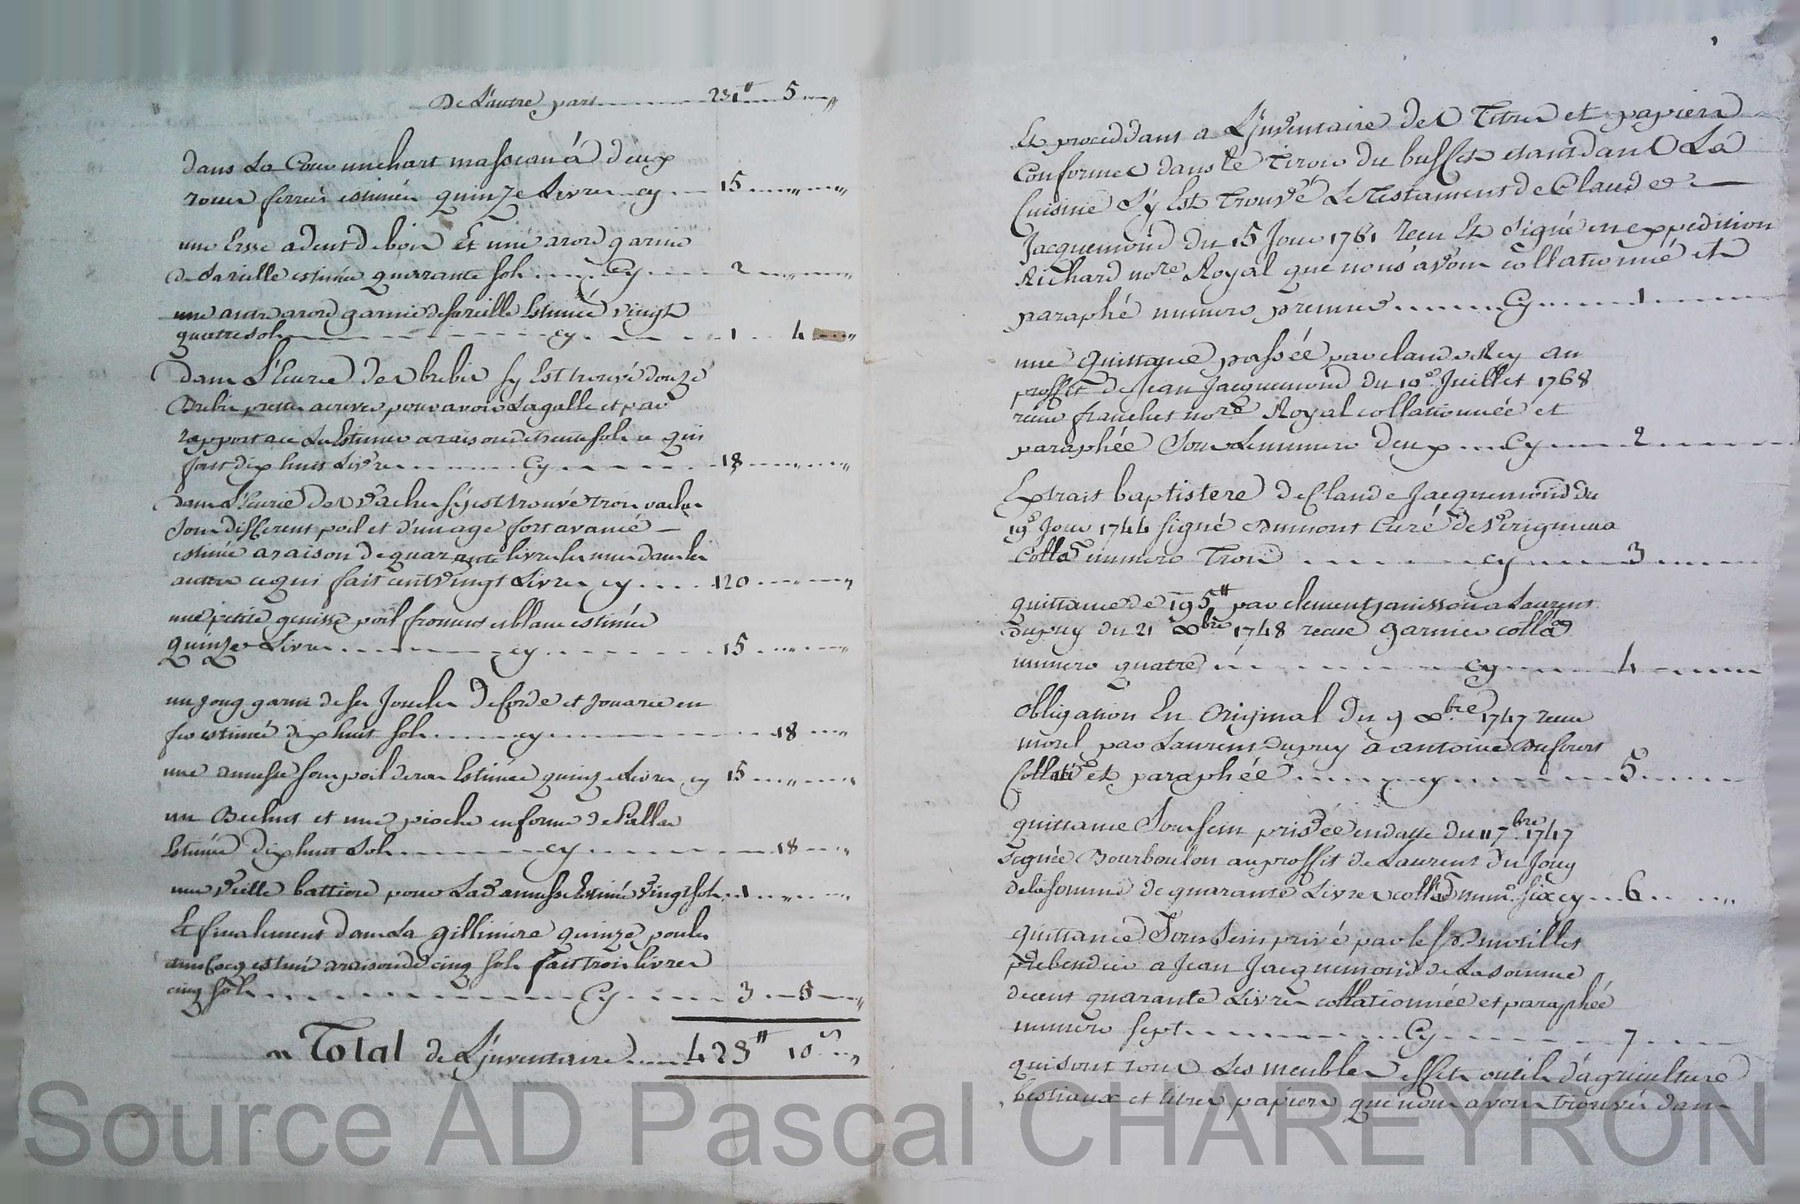 De L'autre part ........ 231# .... 5 ....
dans La Cour un chart massein à deux
roues ferrées estimée quinze Livres cy .... 15 ....
une Erse a dent de bois Et une arond garnie
de sa rielle estimée quarante sols ..... Cy .... 2 ....
une autre arond garnie de sa rielle Estimée vingt
quatre sols .... cy .... 1 .... 4 ....
dans L'Ecurie des brebis sy est trouvé douze
Brebis pour avoir La galle et par
rapport a ce Les Estimée a raison de trente sols ce qui
fait dix huit Livres .... Cy .... 18 ....
dans L'Ecurie des vaches s'y est trouvé trois vaches
sous different poil et d'un age fort avancé
estimée a raison de quarante livres les unes dans les
autres ce qui fait cent vingt Livres cy .... 120 ....
une petite genisse poil froment et blanc estimée
quinze Livres .... cy .... 15 ....
un joug garni de ses Joucles de sorde et jouarie en
fer estimée dix huit sols .... cy .... 18 ....
une annesse sous poil de rat Estimée quinze Livres cy 15 ....
un Bechat et une pioche en forme de
Estimée dix huit Sols .... cy .... 18 ....
une vielle battiere pour Lad annesse Estimée vingt sols .. 1 ....
Et finalement dans La gilliniere quinze poules
un cocq estimé a raison de cinq sols fait trois livres
cinq sols .... Cy .... 3 .... 5 ....
Total de L'inventaire .... 423# 10s ....
Et proceddant a L'inventaire des Titres et papiers
Conformes dans le Tiroir du buffet etant dans La
Cuisine s'y Est trouvé Le Testament de Claude
Jacquemond du 15 Jour 1761 recu Et signé en expedition
Richard nore Royal que nous avons collationné et
paraphé numero premier ...... Cy .... 1 ....
une quittance passée par claude Rey au
proffit de Jean Jacquemond du 10e Juillet 1768
recue franchet nore Royal collationnée et
paraphée Sous Le numero deux .... Cy .... 2 ....
Extrait baptistere de Claude Jacquemond du
19e Jour 1744 signé Dumont Curé de Verigneux
Colla numero Trois .... cy .... 3 ....
quittance de 195# par clement janisson a Laurent
Dupuy du 21 8bre 1748 recue garnier colla
numero quatre .... cy .... 4 ....
Obligation En Original du 9 8bre 1747 recue
morel par Laurent Dupuy a antoine Dufour
Collati et paraphée .... cy .... 5 ....
quittance Sous sein privée en datte du 11 7bre 1747
signée Bourboulon au proffit de Laurent du Jouy
de la somme de quarante Livres colla num. six cy .. 6 ....
quittance Sous sein privé par le sr Demorilles
prebendier a Jean Jacquemond de La somme
de cent quarante Livres collationnée et paraphée
numero sept .... Cy .... 7 ....
qui sont tous Les meubles effets outils d'agriculture
bestiaux et titres papiers que nous avons trouvés dans
Source AD Pascal CHAREYRON